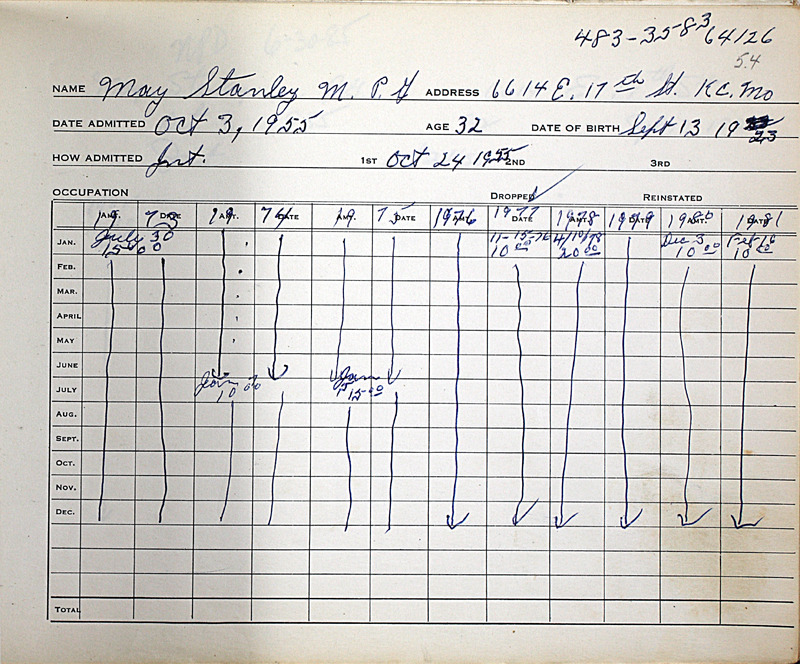 483-3583 64126
54
NAME May Stanley M. P.G ADDRESS 6614 E. 17th St. K.C. Mo
DATE ADMITTED Oct 3, 1955 AGE 32 DATE OF BIRTH Sept 13 19 23
HOW ADMITTED Int. 1ST Oct 24 1955 2ND 3RD
OCCUPATION DROPPED REINSTATED
AMT. DATE AMT. DATE AMT. DATE AMT. DATE AMT. DATE AMT. DATE
19 73 19 74 19 75 1976 1977 1978 1979 1980 1981
JAN. July 30 11-15-76 4/10/78 Dec 3 Feb 16
15 00 10 00 20 00 10 00 10 00
FEB.
MAR.
APRIL
MAY
JUNE
JULY Jan Jan
10 15 00
AUG.
SEPT.
OCT.
NOV.
DEC.
TOTAL